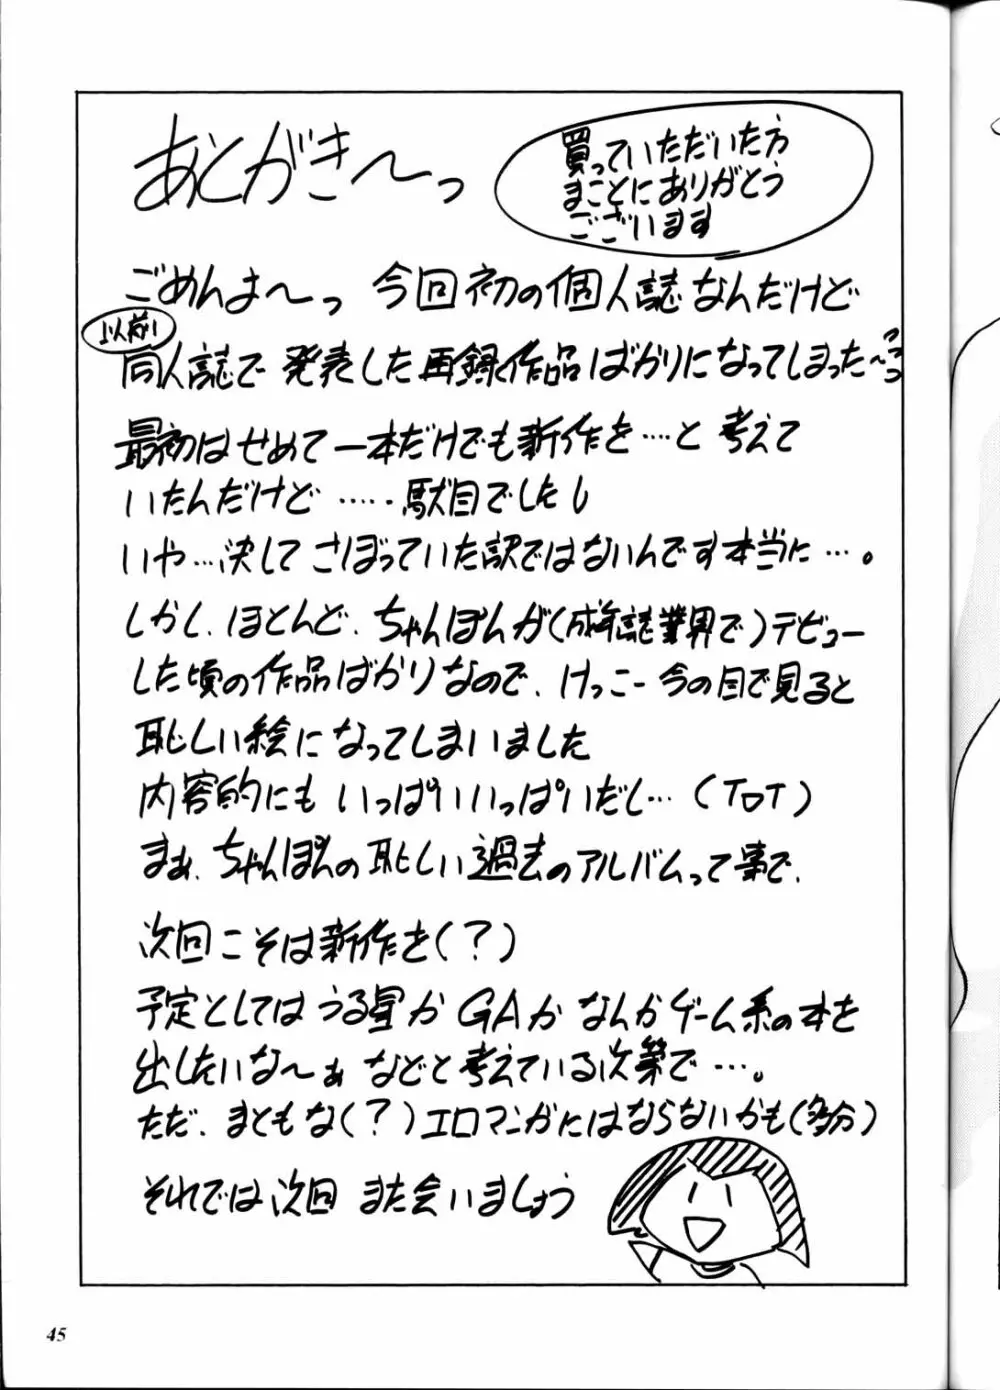 あとがき〜っ
買っていただいた方
まことにありがとう
ございます
ごめんよ〜っ 今回初の個人誌なんだけど
以前
同人誌で発表した再録作品ばかりになってしまった〜っっっ
最初はせめて一本だけでも新作を…と考えて
いたんだけど……駄目でした
いや…決してさぼっていた訳ではないんです本当に…。
しかし、ほとんど、ちゃんぽんが(成年誌業界で)デビュー
した頃の作品ばかりなので、けっこー今の目で見ると
恥しい絵になってしまいました
内容的にもいっぱいいっぱいだし…(TOT)
まぁ、ちゃんぽんの恥しい過去のアルバムって事で、
次回こそは新作を(?)
予定としてはうる星かGAかなんかゲーム系の本を
出したいな〜ぁなどと考えている次第で…。
ただ、まともな(?)エロマンガにはならないかも(多分)
それでは次回また会いましょう
45